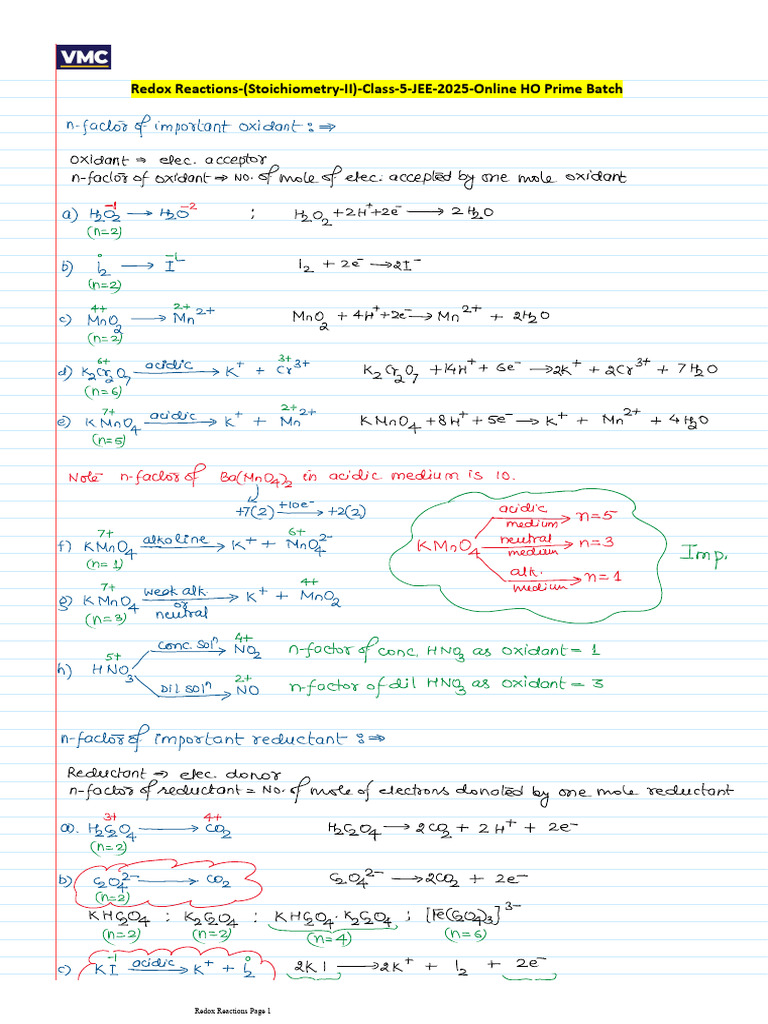 VMC
Redox Reactions-(Stoichiometry-II)-Class-5-JEE-2025-Online HO Prime Batch
n-factor of important oxidant : ⇒
Oxidant ⇒ elec. acceptor
n-factor of oxidant ⇒ No. of mole of elec. accepted by one mole oxidant
-1 -2
a) H₂O₂ ⟶ H₂O ; H₂O₂ + 2H⁺ + 2e⁻ ⟶ 2H₂O
(n=2)
0 -1
b) I₂ ⟶ I⁻ I₂ + 2e⁻ ⟶ 2I⁻
(n=2)
4+ 2+
c) MnO₂ ⟶ Mn²⁺ MnO₂ + 4H⁺ + 2e⁻ ⟶ Mn²⁺ + 2H₂O
(n=2)
6+ acidic 3+
d) K₂Cr₂O₇ ⟶ K⁺ + Cr³⁺ K₂Cr₂O₇ + 14H⁺ + 6e⁻ ⟶ 2K⁺ + 2Cr³⁺ + 7H₂O
(n=6)
7+ acidic 2+
e) KMnO₄ ⟶ K⁺ + Mn²⁺ KMnO₄ + 8H⁺ + 5e⁻ ⟶ K⁺ + Mn²⁺ + 4H₂O
(n=5)
Note n-factor of Ba(MnO₄)₂ in acidic medium is 10.
+7(2) +10e⁻ ⟶ +2(2)
7+ alkaline 6+
f) KMnO₄ ⟶ K⁺ + MnO₄²⁻
(n=1)
KMnO₄
acidic medium ⟶ n=5
neutral medium ⟶ n=3
alk. medium ⟶ n=1
Imp.
7+ weak alk. or neutral 4+
g) KMnO₄ ⟶ K⁺ + MnO₂
(n=3)
5+ conc. solⁿ 4+
h) HNO₃ ⟶ NO₂ n-factor of conc. HNO₃ as oxidant = 1
Dil solⁿ 2+
⟶ NO n-factor of dil HNO₃ as oxidant = 3
n-factor of important reductant : ⇒
Reductant ⇒ elec. donor
n-factor of reductant = No. of mole of electrons donated by one mole reductant
3+ 4+
a). H₂C₂O₄ ⟶ CO₂ H₂C₂O₄ ⟶ 2CO₂ + 2H⁺ + 2e⁻
(n=2)
b) C₂O₄²⁻ ⟶ CO₂ C₂O₄²⁻ ⟶ 2CO₂ + 2e⁻
(n=2)
KHC₂O₄ ; K₂C₂O₄ ; KHC₂O₄·K₂C₂O₄ ; [Fe(C₂O₄)₃]³⁻
(n=2) (n=2) (n=4) (n=6)
-1 acidic 0
c) KI ⟶ K⁺ + I₂ 2KI ⟶ 2K⁺ + I₂ + 2e⁻
Redox Reactions Page 1